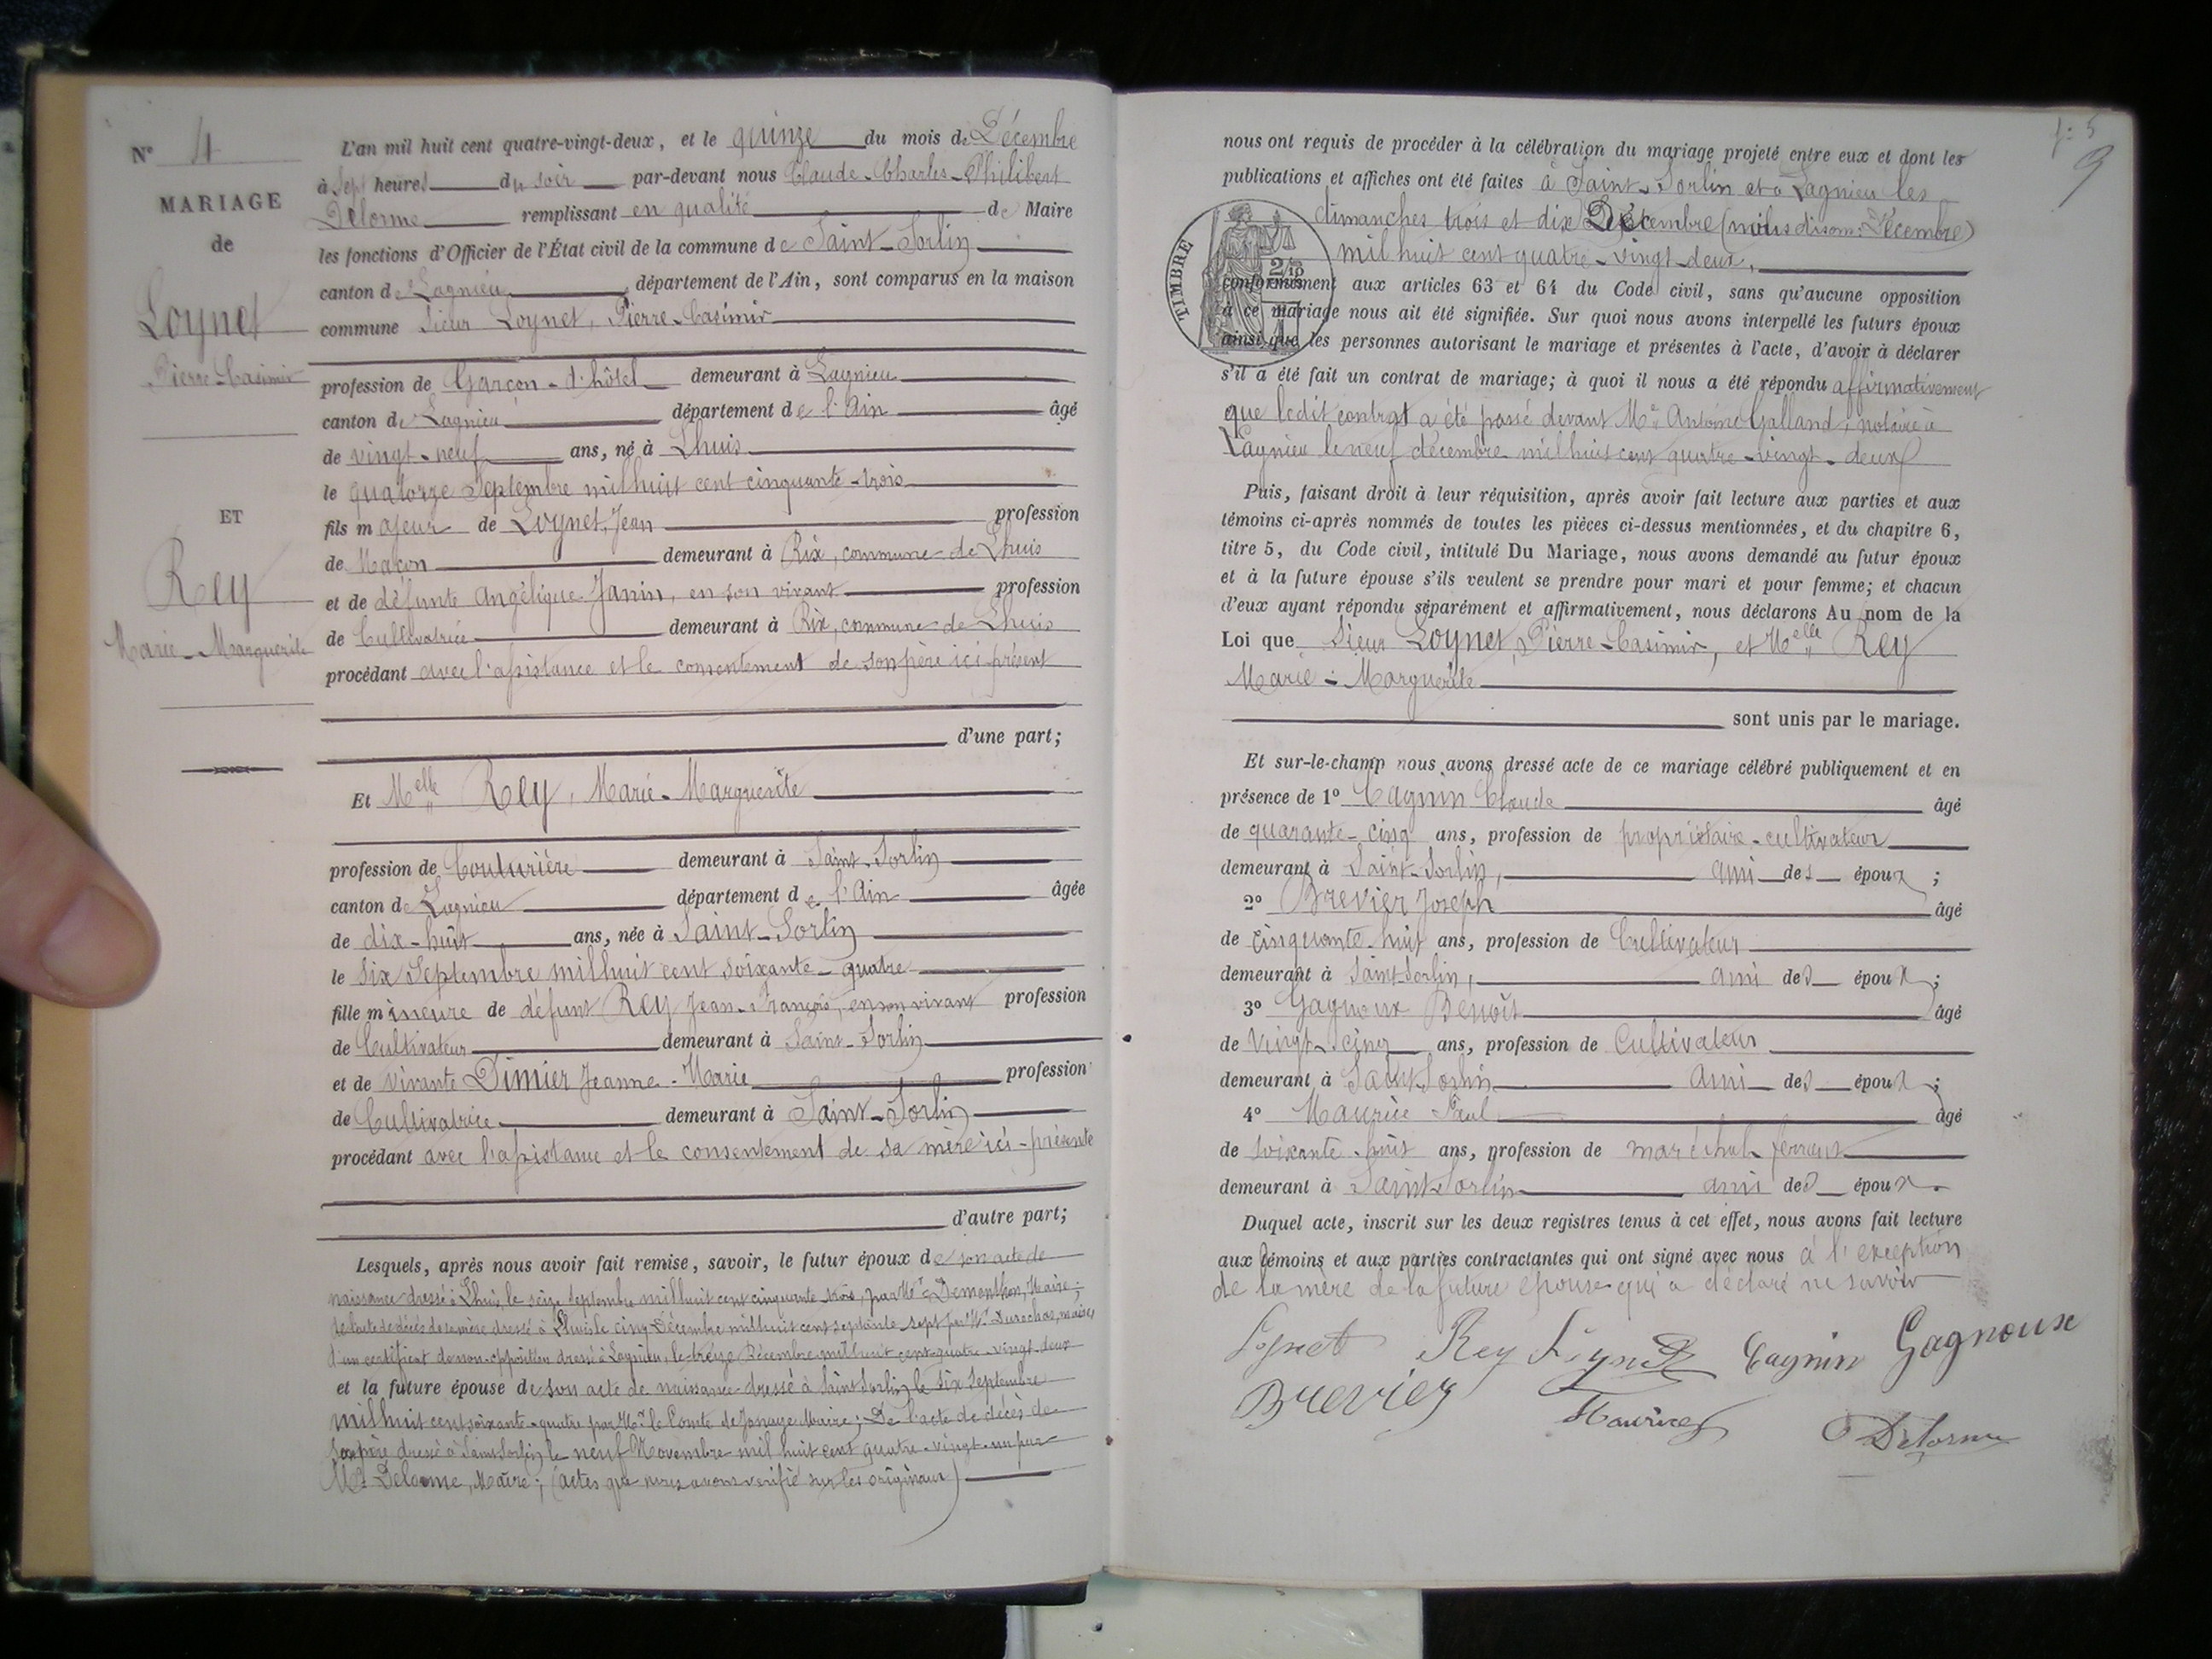 N° 4
MARIAGE
de
Loynet
Pierre-Casimir
ET
Rey
Marie-Marguerite
L'an mil huit cent quatre-vingt-deux, et le quinze du mois de Décembre
à Sept heures du soir par-devant nous Claude-Charles-Philibert
Delorme remplissant en qualité de Maire
les fonctions d'Officier de l'État civil de la commune de Saint-Sorlin
canton de Lagnieu, département de l'Ain, sont comparus en la maison
commune Sieur Loynet, Pierre-Casimir
profession de Garçon-d'hôtel demeurant à Lagnieu
canton de Lagnieu département de l'Ain âgé
de vingt-neuf ans, né à Lhuis
le quatorze Septembre mil huit cent cinquante-trois
fils majeur de Loynet, Jean profession
de Maçon demeurant à Rix, commune de Lhuis
et de défunte Angélique Janin, en son vivant profession
de Cultivatrice demeurant à Rix, commune de Lhuis
procédant avec l'assistance et le consentement de son père ici présent
d'une part;
Et Melle Rey, Marie-Marguerite
profession de Couturière demeurant à Saint-Sorlin
canton de Lagnieu département de l'Ain âgée
de dix-huit ans, née à Saint-Sorlin
le six Septembre mil huit cent soixante-quatre
fille mineure de défunt Rey Jean-François, en son vivant profession
de Cultivateur demeurant à Saint-Sorlin
et de vivante Dimier Jeanne-Marie profession
de Cultivatrice demeurant à Saint-Sorlin
procédant avec l'assistance et le consentement de sa mère ici-présente
d'autre part;
Lesquels, après nous avoir fait remise, savoir, le futur époux de son acte de
naissance dressé à Lhuis, le seize Septembre mil huit cent cinquante-trois, par Mr Demonthon, Maire;
de l'acte de décès de sa mère dressé à Lhuis le cinq Décembre mil huit cent septante-sept par Mr Durochat, maire;
d'un certificat de non-opposition dressé à Lagnieu, le treize Décembre mil huit cent quatre-vingt-deux
et la future épouse de son acte de naissance dressé à Saint Sorlin le six Septembre
mil huit cent soixante-quatre par Mr le Comte de Jonage Maire; De l'acte de décès de
son père dressé à Saint Sorlin le neuf Novembre mil huit cent quatre-vingt-un par
Mr Delorme, Maire; (actes que nous avons vérifié sur les originaux)
f: 5
9
nous ont requis de procéder à la célébration du mariage projeté entre eux et dont les
publications et affiches ont été faites à Saint-Sorlin et à Lagnieu les
dimanches trois et dix Décembre (nous disons: Décembre)
mil huit cent quatre-vingt-deux,
TIMBRE
conformément aux articles 63 et 64 du Code civil, sans qu'aucune opposition
à ce mariage nous ait été signifiée. Sur quoi nous avons interpellé les futurs époux
ainsi que les personnes autorisant le mariage et présentes à l'acte, d'avoir à déclarer
s'il a été fait un contrat de mariage; à quoi il nous a été répondu affirmativement
que ledit contrat a été passé devant Me Antoine Galland, notaire à
Lagnieu le neuf décembre mil huit cent quatre-vingt-deux
Puis, faisant droit à leur réquisition, après avoir fait lecture aux parties et aux
témoins ci-après nommés de toutes les pièces ci-dessus mentionnées, et du chapitre 6,
titre 5, du Code civil, intitulé Du Mariage, nous avons demandé au futur époux
et à la future épouse s'ils veulent se prendre pour mari et pour femme; et chacun
d'eux ayant répondu séparément et affirmativement, nous déclarons Au nom de la
Loi que Sieur Loynet, Pierre-Casimir, et Melle Rey
Marie-Marguerite
sont unis par le mariage.
Et sur-le-champ nous avons dressé acte de ce mariage célébré publiquement et en
présence de 1° Cagnin Claude âgé
de quarante-cinq ans, profession de propriétaire-cultivateur
demeurant à Saint-Sorlin, ami des époux;
2° Brevier Joseph âgé
de cinquante-huit ans, profession de Cultivateur
demeurant à Saint-Sorlin, ami des époux;
3° Gagnoux Benoît âgé
de Vingt-cinq ans, profession de Cultivateur
demeurant à Saint-Sorlin ami des époux;
4° Maurice Paul âgé
de soixante-huit ans, profession de maréchal-ferrant
demeurant à Saint-Sorlin ami des époux.
Duquel acte, inscrit sur les deux registres tenus à cet effet, nous avons fait lecture
aux témoins et aux parties contractantes qui ont signé avec nous à l'exception
de la mère de la future épouse qui a déclaré ne savoir
Loynet Rey Loynet Cagnin Gagnoux
Brevier Maurice Delorme